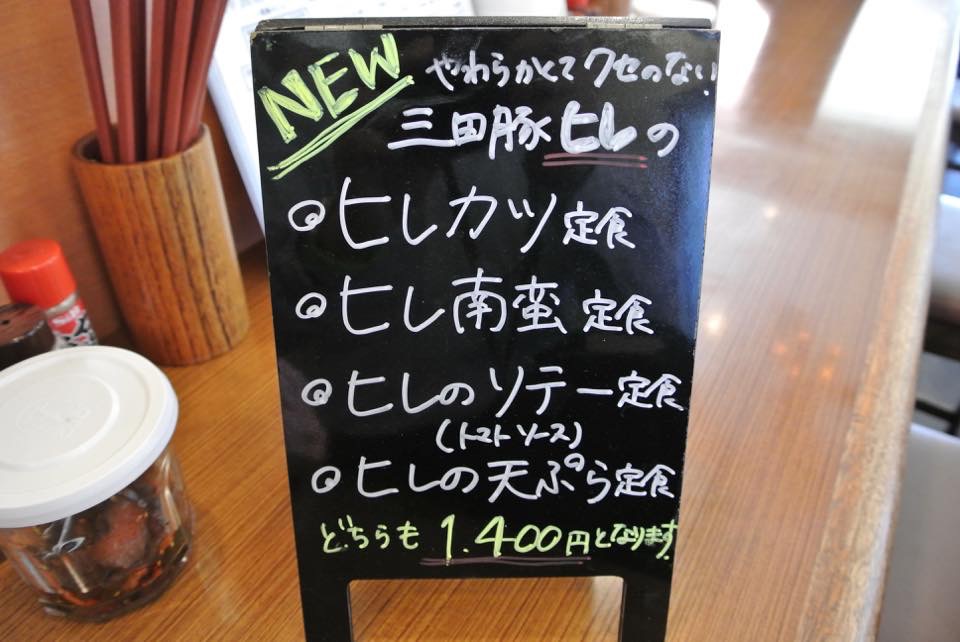 NEW
やわらかくてクセのない
三田豚ヒレの
◎ヒレカツ定食
◎ヒレ南蛮定食
◎ヒレのソテー定食
(トマトソース)
◎ヒレの天ぷら定食
どちらも1.400円となります